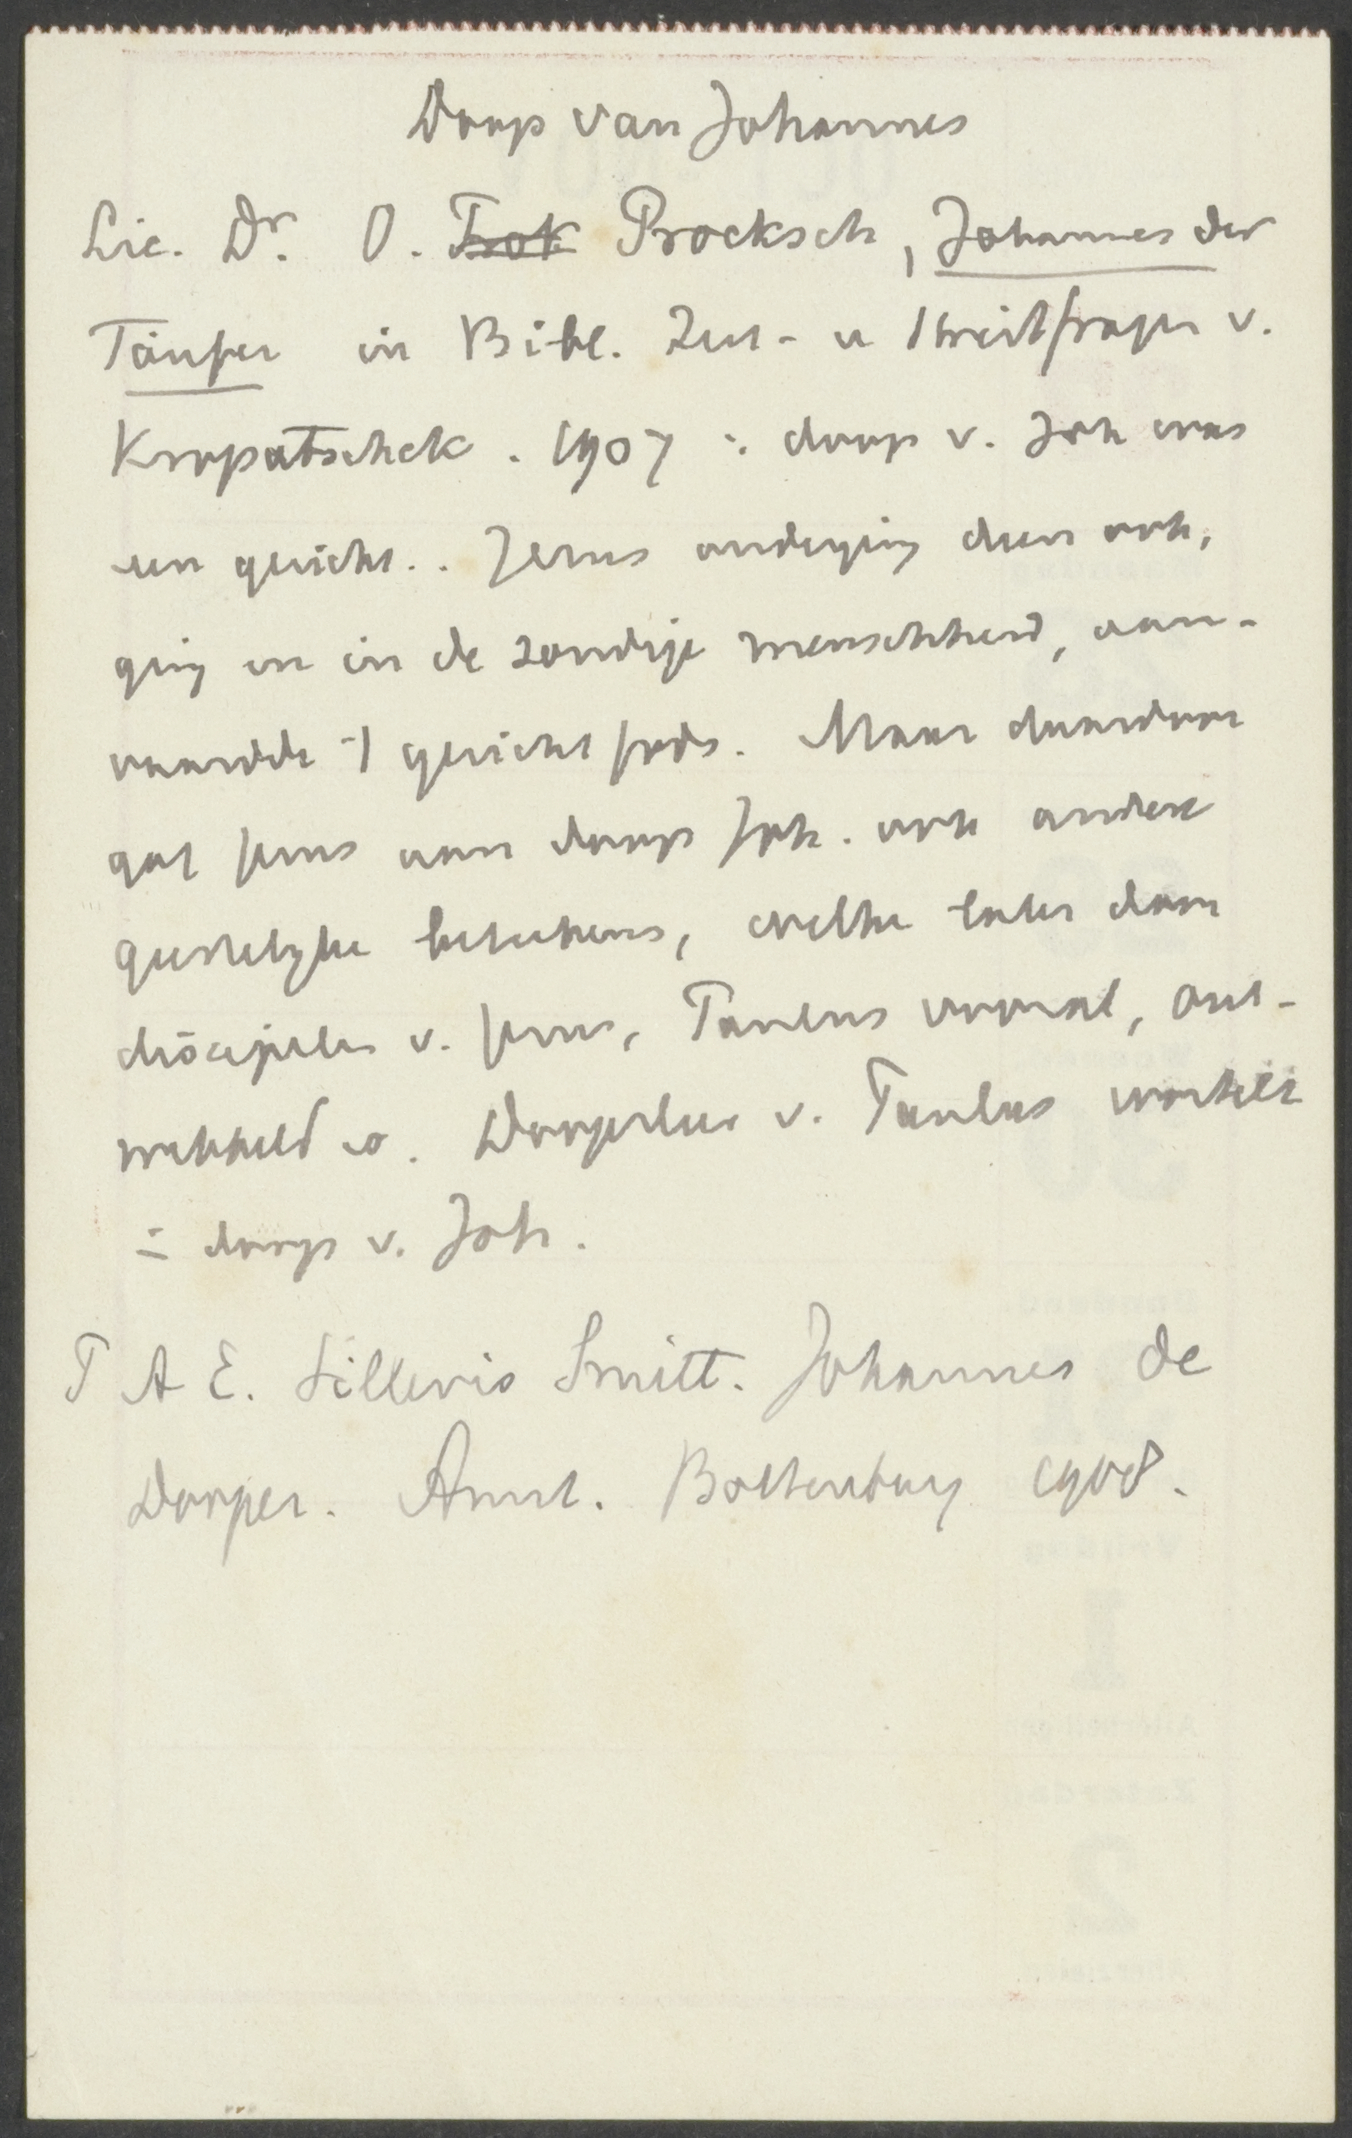 Doop van Johannes
Lic. Dr. O. Prok Procksch, Johannes der
Täufer in Bibl. Zeit- u Streitfragen v.
Kropatscheck. 1907 : doop v. Joh was
een gericht.. Jezus onderging dien ook,
ging in in de zondige menschheid, aan-
vaardde 't gericht Gods. Maar daardoor
gaf Jezus aan doop Joh. ook andere
geestelijke beteekenis, welke later door
discipelen v. Jezus, Paulus vooral, ont-
wikkeld is. Doopsleer v. Paulus wortelt
in doop v. Joh.
P A E. Sillevis Smitt. Johannes de
Dooper. Amst. Bottenburg 1908.